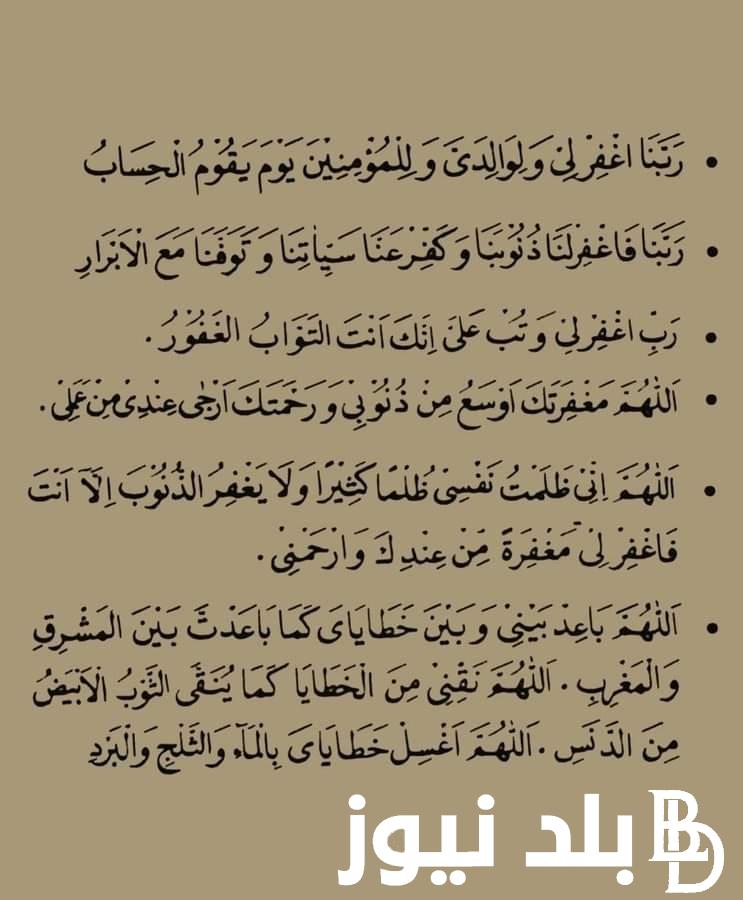 • رَبَّنَا اغْفِرْ لِيْ وَلِوَالِدَيَّ وَ لِلْمُؤْمِنِيْنَ يَوْمَ يَقُوْمُ الْحِسَابُ
• رَبَّنَا فَاغْفِرْلَنَا ذُنُوْبَنَا وَ كَفِّرْعَنَّا سَيِّاٰتِنَا وَ تَوَفَّنَا مَعَ الْاَبْرَارِ
• رَبِّ اغْفِرْ لِيْ وَ تُبْ عَلَيَّ اِنَّكَ اَنْتَ التَّوَابُ الغَفُوْرُ .
• اَللّٰهُمَّ مَغْفِرَتَكَ اَوْسَعُ مِنْ ذُنُوْبِيْ وَ رَحْمَتَكَ اَرْجٰى عِنْدِيْ مِنْ عَمَلِيْ .
• اَللّٰهُمَّ اِنِّيْ ظَلَمْتُ نَفْسِيْ ظُلْمًا كَثِيْرًا وَلَا يَغْفِرُ الذُّنُوْبَ اِلَّآ اَنْتَ
فَاغْفِرْ لِيْ مَغْفِرَةً مِّنْ عِنْدِكَ وَارْحَمْنِيْ .
• اَللّٰهُمَّ بَاعِدْ بَيْنِيْ وَ بَيْنَ خَطَايَايَ كَمَا بَاعَدْتَّ بَيْنَ المَشْرِقِ
وَالْمَغْرِبِ . اَللّٰهُمَّ نَقِّنِيْ مِنَ الْخَطَايَا كَمَا يُنَقَّى الثَّوْبُ الْاَبْيَضُ
مِنَ الدَّنَسِ . اَللّٰهُمَّ اغْسِلْ خَطَايَايَ بِالْمَآءِ وَالثَّلْجِ وَالْبَرَدِ
بلد نيوز BD